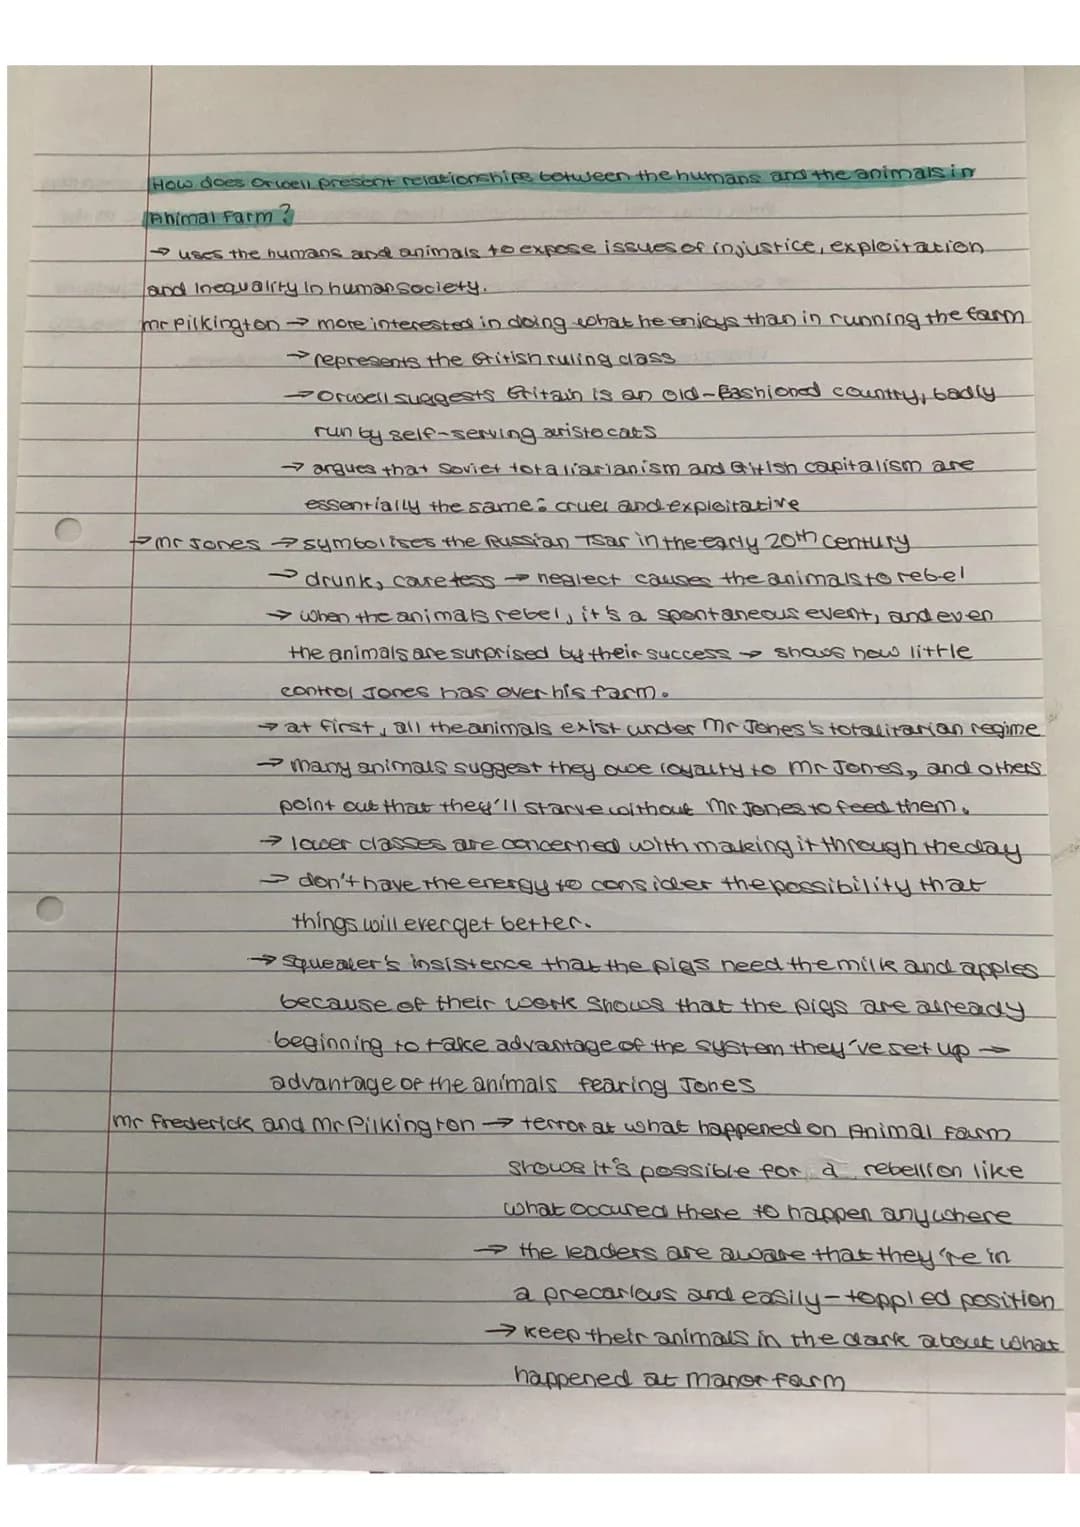 How does Orwell present relationships between the humans and the animals in
Animal Farm?
→ uses the humans and animals to expose issues of injustice, exploitation
and inequality in human society.
Mr Pilkington → more interested in doing what he enjoys than in running the farm
→ represents the British ruling class
→ Orwell suggests Britain is an old-fashioned country, badly
run by self-serving aristocats
→ argues that Soviet totaliarianism and British capitalism are
essentially the same: cruel and exploitative
→ Mr Jones → symbolises the Russian Tsar in the early 20th century
→ drunk, careless → neglect causes the animals to rebel
→ when the animals rebel, it's a spontaneous event, and even
the animals are surprised by their success → shows how little
control Jones has over his farm.
→ at first, all the animals exist under Mr Jones's totalitarian regime
→ many animals suggest they owe loyalty to Mr Jones, and others
point out that they'll starve without Mr Jones to feed them.
→ lower classes are concerned with making it through the day
→ don't have the energy to consider the possibility that
things will ever get better.
→ Squealer's insistence that the pigs need the milk and apples
because of their work shows that the pigs are already
beginning to take advantage of the system they've set up →
advantage of the animals fearing Jones
Mr Frederick and Mr Pilkington → terror at what happened on Animal Farm
shows it's possible for a rebellion like
what occured there to happen anywhere
→ the leaders are aware that they're in
a precarious and easily-toppled position
→ keep their animals in the dark about what
happened at manor farm